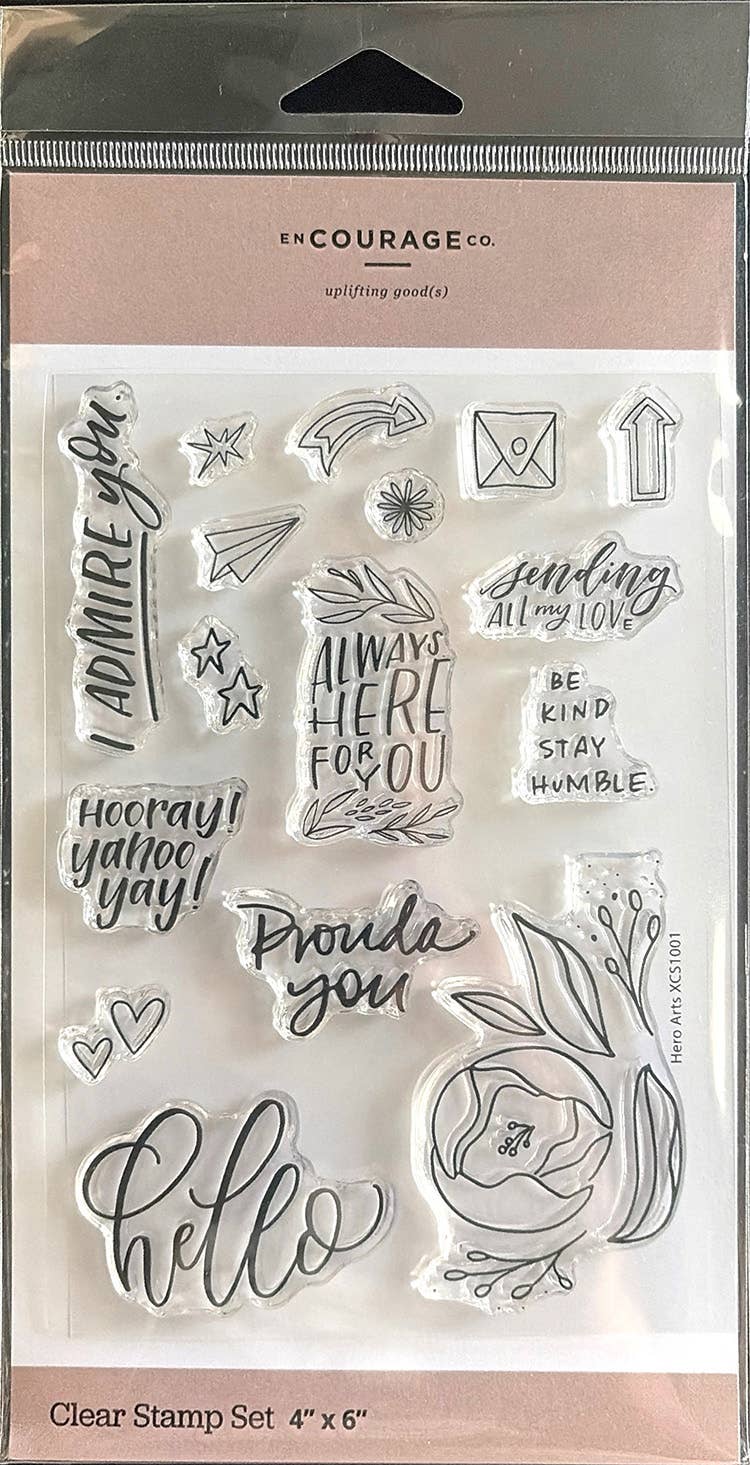 ENCOURAGE CO.
uplifting good(s)
I ADMIRE you.
sending
ALL my LOVE
ALWAYS
HERE
FOR
YOU
BE
KIND
STAY
HUMBLE.
HOORAY!
yahoo
yay!
Prouda
you
Hero Arts XCS1001
hello
Clear Stamp Set 4" x 6"